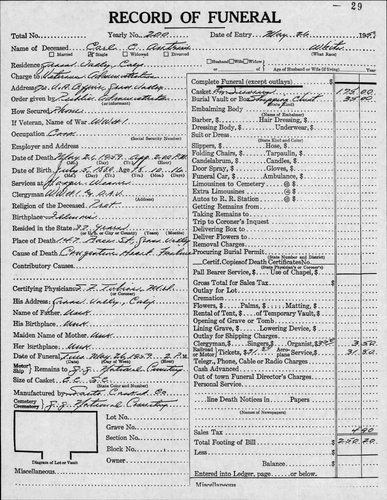 29
RECORD OF FUNERAL
Total No. Yearly No. 200 Date of Entry May 26 195
Name of Deceased Carl C. White
(What Race)
Married Single Widowed Divorced Husband Wife Widow of
Residence Grass Valley, Calif. Age of Husband or Wife (if living)
Charge to Veterans Administration
Address
Order given by Public Administrator
How Secured Phone
If Veteran, Name of War WW #1
Occupation Cook (Social Security Number)
Employer and Address
Date of Death May 21, 1959. Age
Date of Birth July 5, 1880
Services at Hooper Weaver
Clergyman WW #1 &
Religion of the Deceased Prot.
Birthplace
Resided in the State 32 Years
Place of Death 147 St. Grass Valley
Cause of Death Congestive Heart Failure
Contributory Causes.
Certifying Physician
His Address Grass Valley, Calif
Name of Father Unk.
His Birthplace Unk.
Maiden Name of Mother Unk.
Her Birthplace Unk.
Date of Funeral Tues. May 26, 1959. 2 P.M.
Motor Ship to Remains } G.G. National Cemetery
Size of Casket
(State Color and Number)
Manufactured by Casket Co
Cemetery Crematory } G.G. National Cemetery
Lot No.
Grave No.
Section No.
Block No.
Owner
Diagram of Lot or Vault
Miscellaneous
Complete Funeral (except outlays) $
Casket 175.00
Burial Vault or Box Shipping Chest
Embalming Body
Barber, $ Hair Dressing, $
Dressing Body, $ Underwear, $
Suit or Dress
Slippers, $ Hose, $
Folding Chairs, $ Tarpaulin, $
Candelabrum, $ Candles, $
Door Spray, $ Gloves, $
Funeral Car, $ Ambulance, $
Limousines to Cemetery @ $
Extra Limousines @ $
Autos to R. R. Station @ $
Getting Remains from
Taking Remains to
Trip to Coroner's Inquest
Delivering Box to
Deliver Flowers to
Removal Charges
Procuring Burial Permit
(State Number and District)
Certif. Copies of Death Certificate No.
(State Physician's or Coroner's)
Pall Bearer Service, $ Use of Chapel, $
Gross Total for Sales Tax $
Outlay for Lot
Cremation
Flowers, $ Palms, $ Matting, $
Rental of Tent, $ of Temporary Vault, $
Opening of Grave or Tomb
Lining Grave, $ Lowering Device, $
Outlay for Shipping Charges
Clergyman, $ Singers, $ Organist, $ 3.50
Railroad or Motor } Tickets, $ Aeroplane Service, $ 31.50
Telegr., Phone, Cable or Radio Charges
Cash Advanced
Out of town Funeral Director's Charges
Personal Service
line Death Notices in Papers
Sales Tax
Total Footing of Bill
Less
Balance $
Entered into Ledger, page or below.
Miscellaneous